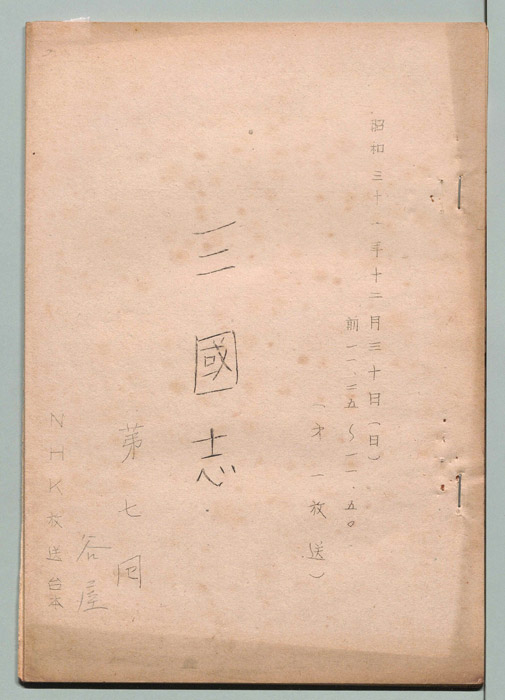 昭和三十一年十二月三十日(日)
前一一、三五~一一、五〇
(才一放送)
三國志
第七回
谷屋
NHK放送台本